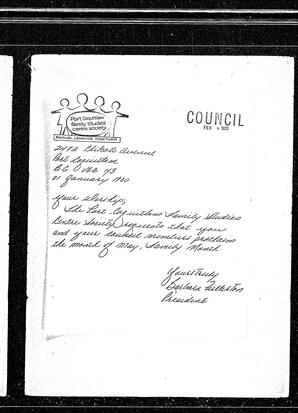 Port Coquitlam
family studies
centre society
COUNCIL
FEB 4 1980
Port Coquitlam
B.C. V3B
21 January 1980
Your Worship;
The Port Coquitlam Family Studies
Centre Society requests that you
and your council members proclaim
the month of May, Family Month.
Yours truly
Barbara
President